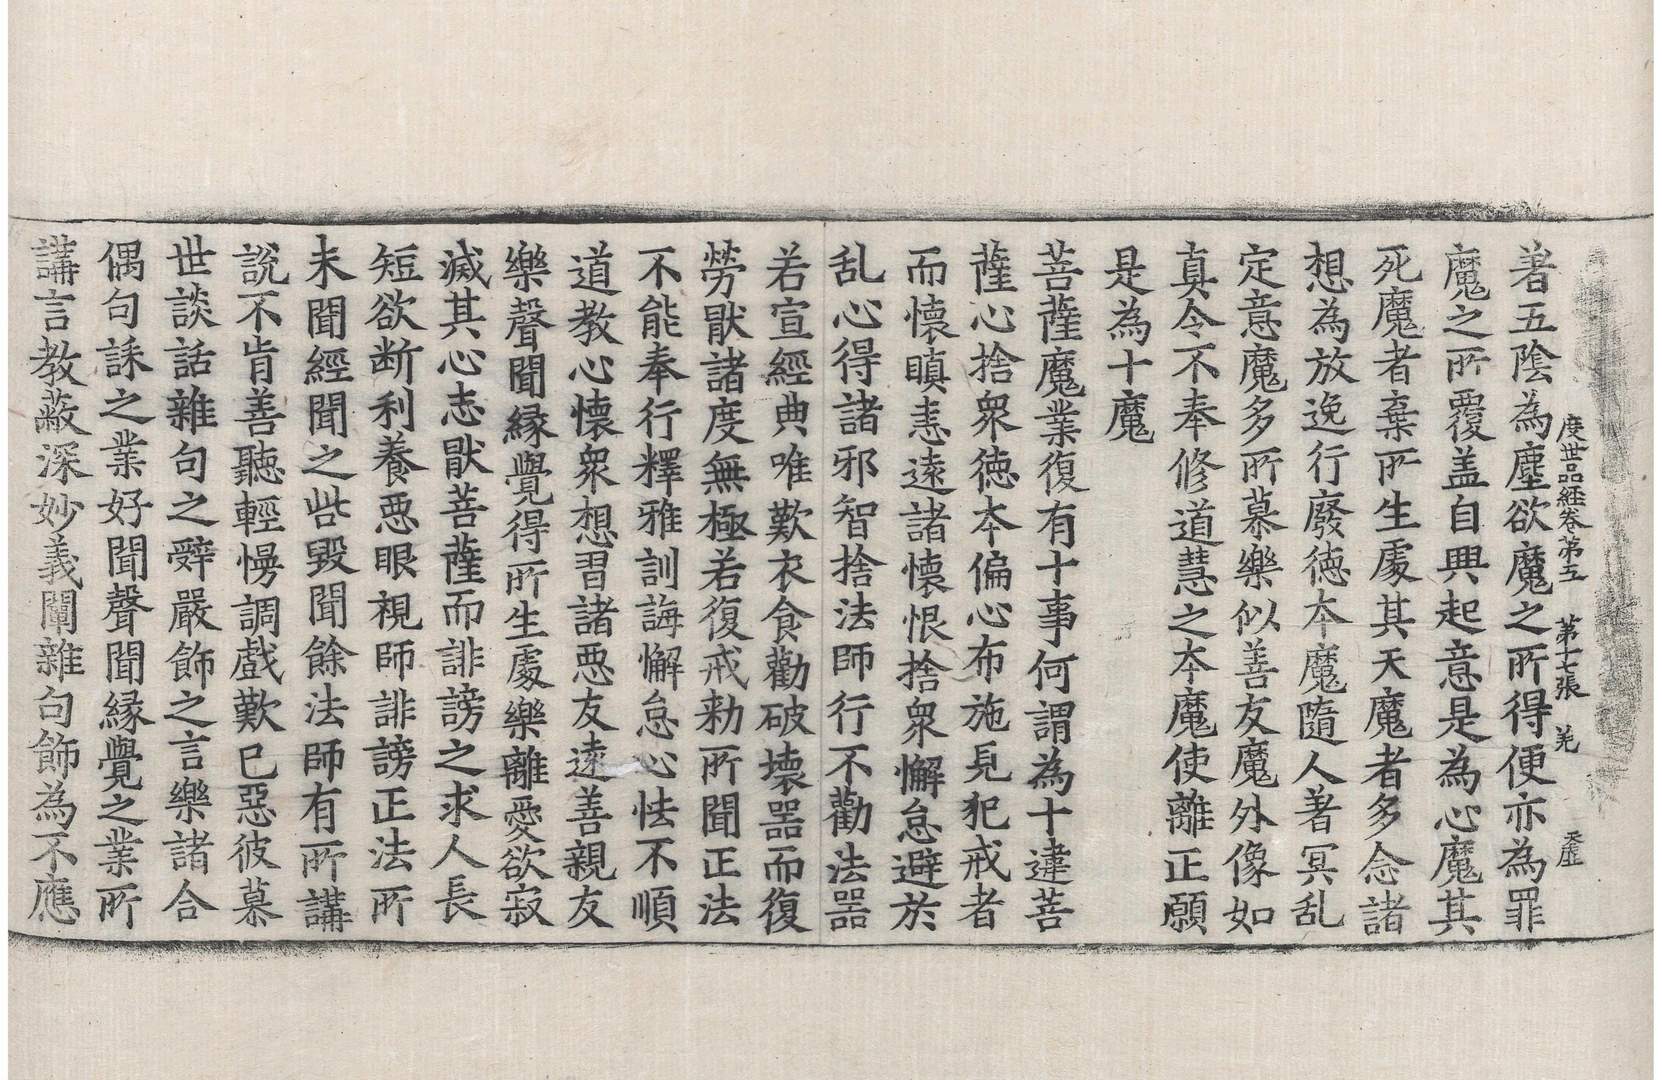 度世品経卷第五　第十七張　羌
著五陰為塵欲魔之所得便亦為罪
魔之所覆盖自興起意是為心魔其
死魔者棄所生處其天魔者多念諸
想為放逸行廢徳本魔隨人著冥乱
定意魔多所慕樂似善友魔外像如
真令不奉修道慧之本魔使離正願
是為十魔
菩薩魔業復有十事何謂為十違菩
薩心捨衆徳本偏心布施見犯戒者
而懐瞋恚遠諸懐恨捨衆懈怠避於
乱心得諸邪智捨法師行不勸法器
若宣經典唯歎衣食勸破壊器而復
勞猒諸度無極若復戒勑所聞正法
不能奉行釋雅訓誨懈怠心怯不順
道教心懐衆想習諸悪友遠善親友
樂聲聞縁覺得所生處樂離愛欲寂
滅其心志猒菩薩而誹謗之求人長
短欲断利養悪眼視師誹謗正法所
未聞經聞之呰毀聞餘法師有所講
說不肯善聽輕慢調戲歎已惡彼慕
世談話雜句之辤嚴飾之言樂諸合
偶句誄之業好聞聲聞縁覺之業所
講言教蔽深妙義闡雜句飾為不應